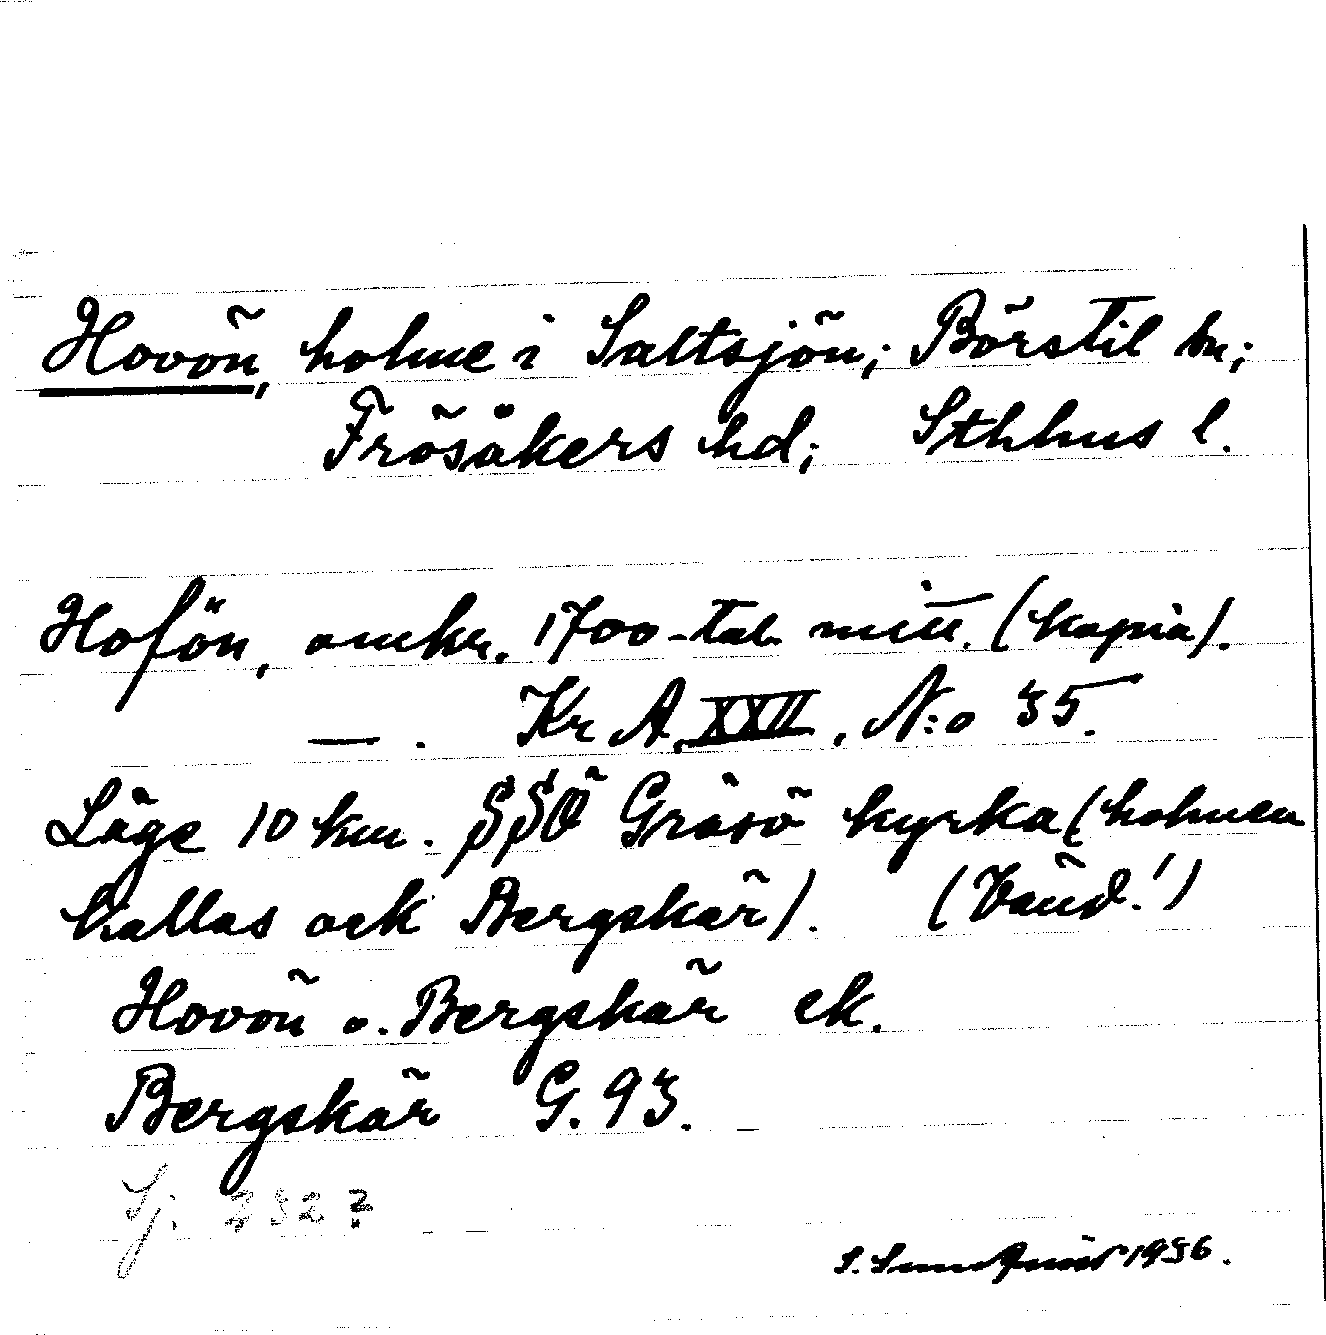 Hovön, holme i Saltsjön; Börstil sn;
Frösåkers hd; Sthlms l.
Hofön, omkr. 1700-tal mitt. (kopia).
— . Kr A. XXII, N:o 35.
Läge 10 km. SSÖ Gräsö kyrka (holmen
kallas ock Bergskär). (Vänd!)
Hovön o. Bergskär ek.
Bergskär G. 93.
Sj. 2
S. Sundqvist 1936.